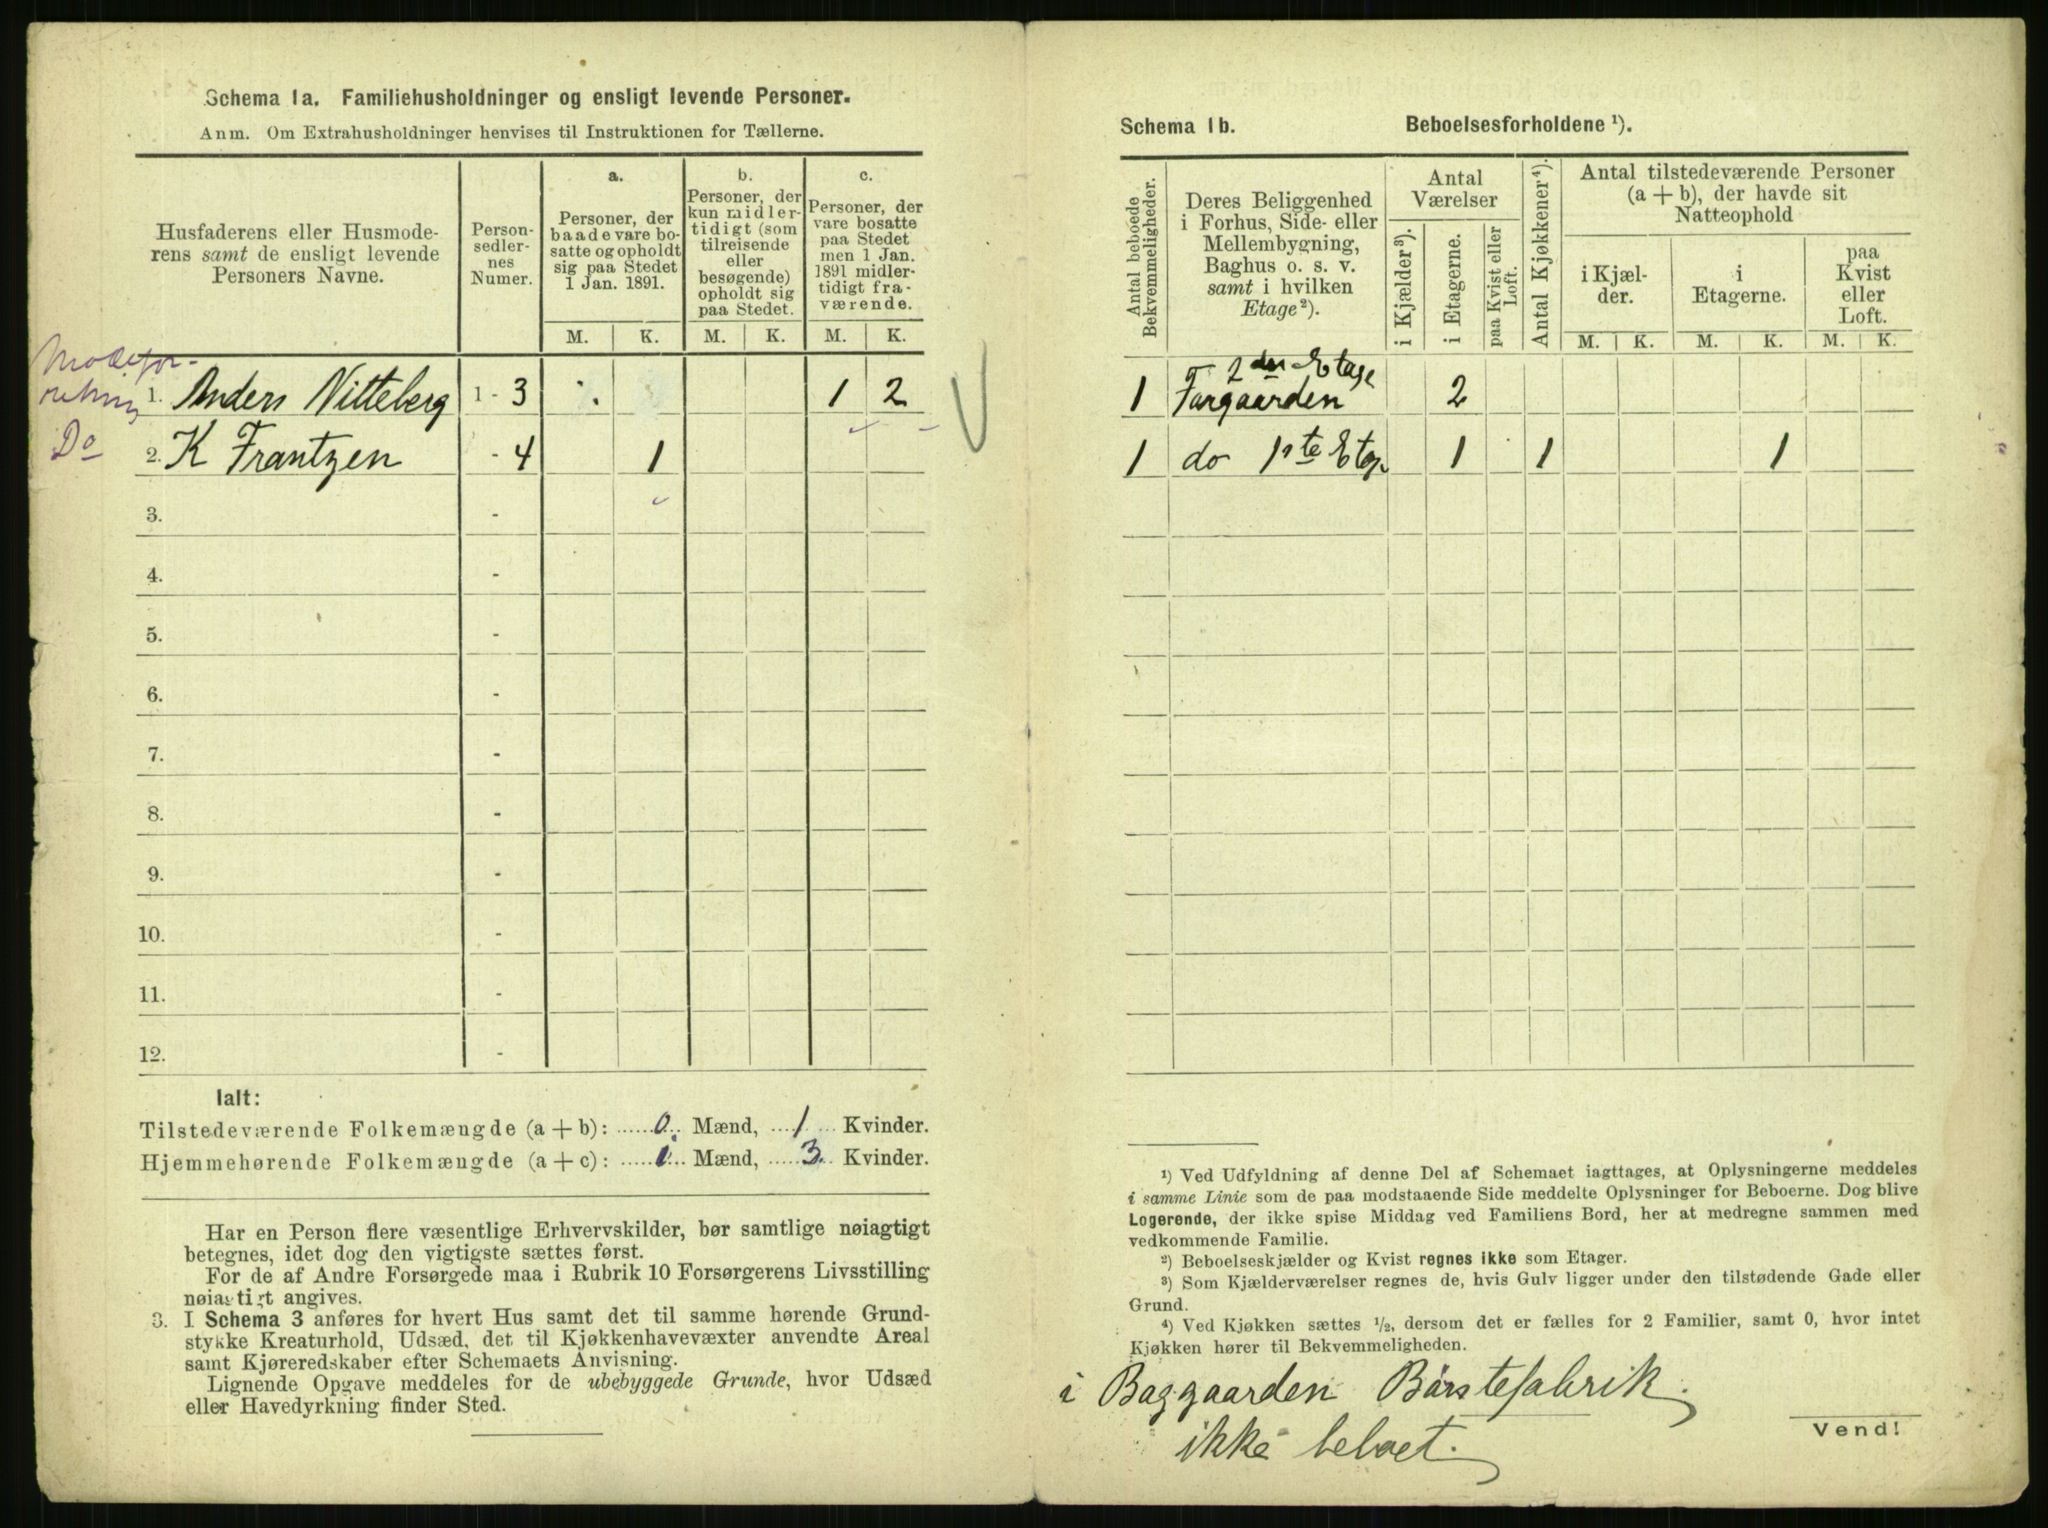 Schema 1a. Familiehusholdninger og ensligt levende Personer.
Anm. Om Extrahusholdninger henvises til Instruktionen for Tællerne.
Husfaderens eller Husmode-
rens samt de ensligt levende
Personers Navne.
Person-
sedler-
nes
Numer.
a.
Personer, der
baade vare bo-
satte og opholdt
sig paa Stedet
1 Jan. 1891.
b.
Personer, der
kun midler-
tidigt (som
tilreisende
eller
besøgende)
opholdt sig
paa Stedet.
c.
Personer, der
vare bosatte
paa Stedet
men 1 Jan.
1891 midler-
tidigt fra-
værende.
M. K. M. K. M. K.
1. Anders Nitteberg 1 - 3 1 2
Do 2. K Frantzen - 4 1
3. -
4. -
5. -
6. -
7. -
8. -
9. -
10. -
11. -
12. -
Ialt:
Tilstedeværende Folkemængde (a + b): 0. Mænd, 1 Kvinder.
Hjemmehørende Folkemængde (a + c): 1 Mænd, 3. Kvinder.
Har en Person flere væsentlige Erhvervskilder, bør samtlige nøiagtigt
betegnes, idet dog den vigtigste sættes først.
For de af Andre Forsørgede maa i Rubrik 10 Forsørgerens Livsstilling
nøiagtigt angives.
3. I Schema 3 anføres for hvert Hus samt det til samme hørende Grund-
stykke Kreaturhold, Udsæd, det til Kjøkkenhavevæxter anvendte Areal
samt Kjøreredskaber efter Schemaets Anvisning.
Lignende Opgave meddeles for de ubebyggede Grunde, hvor Udsæd
eller Havedyrkning finder Sted.
Schema 1b. Beboelsesforholdene ¹).
Antal beboede
Bekvemmeligheder.
Deres Beliggenhed
i Forhus, Side- eller
Mellembygning,
Baghus o. s. v.
samt i hvilken
Etage ²).
Antal
Værelser
i Kjælder ³).
i Etagerne.
paa Kvist eller
Loft.
Antal Kjøkkener ⁴).
Antal tilstedeværende Personer
(a + b), der havde sit
Natteophold
i Kjæl-
der.
i
Etagerne.
paa
Kvist
eller
Loft.
M. K. M. K. M. K.
2den Etage
1 Forgaarden 2
1 do 1ste Etag. 1 1 1
¹) Ved Udfyldning af denne Del af Schemaet iagttages, at Oplysningerne meddeles
i samme Linie som de paa modstaaende Side meddelte Oplysninger for Beboerne. Dog blive
Logerende, der ikke spise Middag ved Familiens Bord, her at medregne sammen med
vedkommende Familie.
²) Beboelseskjælder og Kvist regnes ikke som Etager.
³) Som Kjælderværelser regnes de, hvis Gulv ligger under den tilstødende Gade eller
Grund.
⁴) Ved Kjøkken sættes ½, dersom det er fælles for 2 Familier, samt 0, hvor intet
Kjøkken hører til Bekvemmeligheden.
i Baggaarden Børstefabrik.
ikke beboet.
Vend!